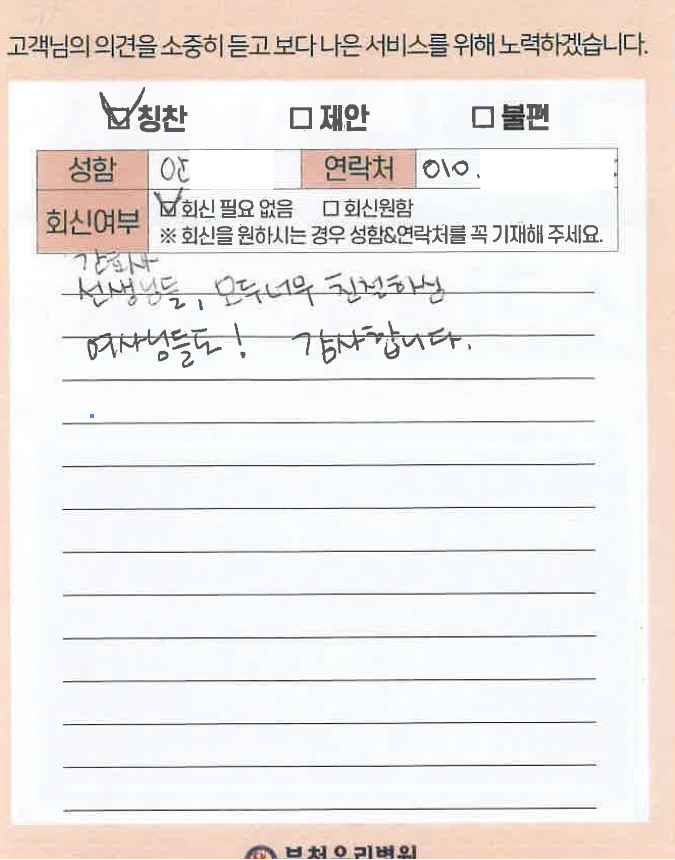 고객님의 의견을 소중히 듣고 보다 나은 서비스를 위해 노력하겠습니다.
☑ 칭찬 ☐ 제안 ☐ 불편
성함 안 연락처 010.
회신여부 ☑ 회신 필요 없음 ☐ 회신원함
※ 회신을 원하시는 경우 성함&연락처를 꼭 기재해 주세요.
간호사
선생님들, 모두너무 친절하심
여사님들도! 감사합니다.
부천우리병원